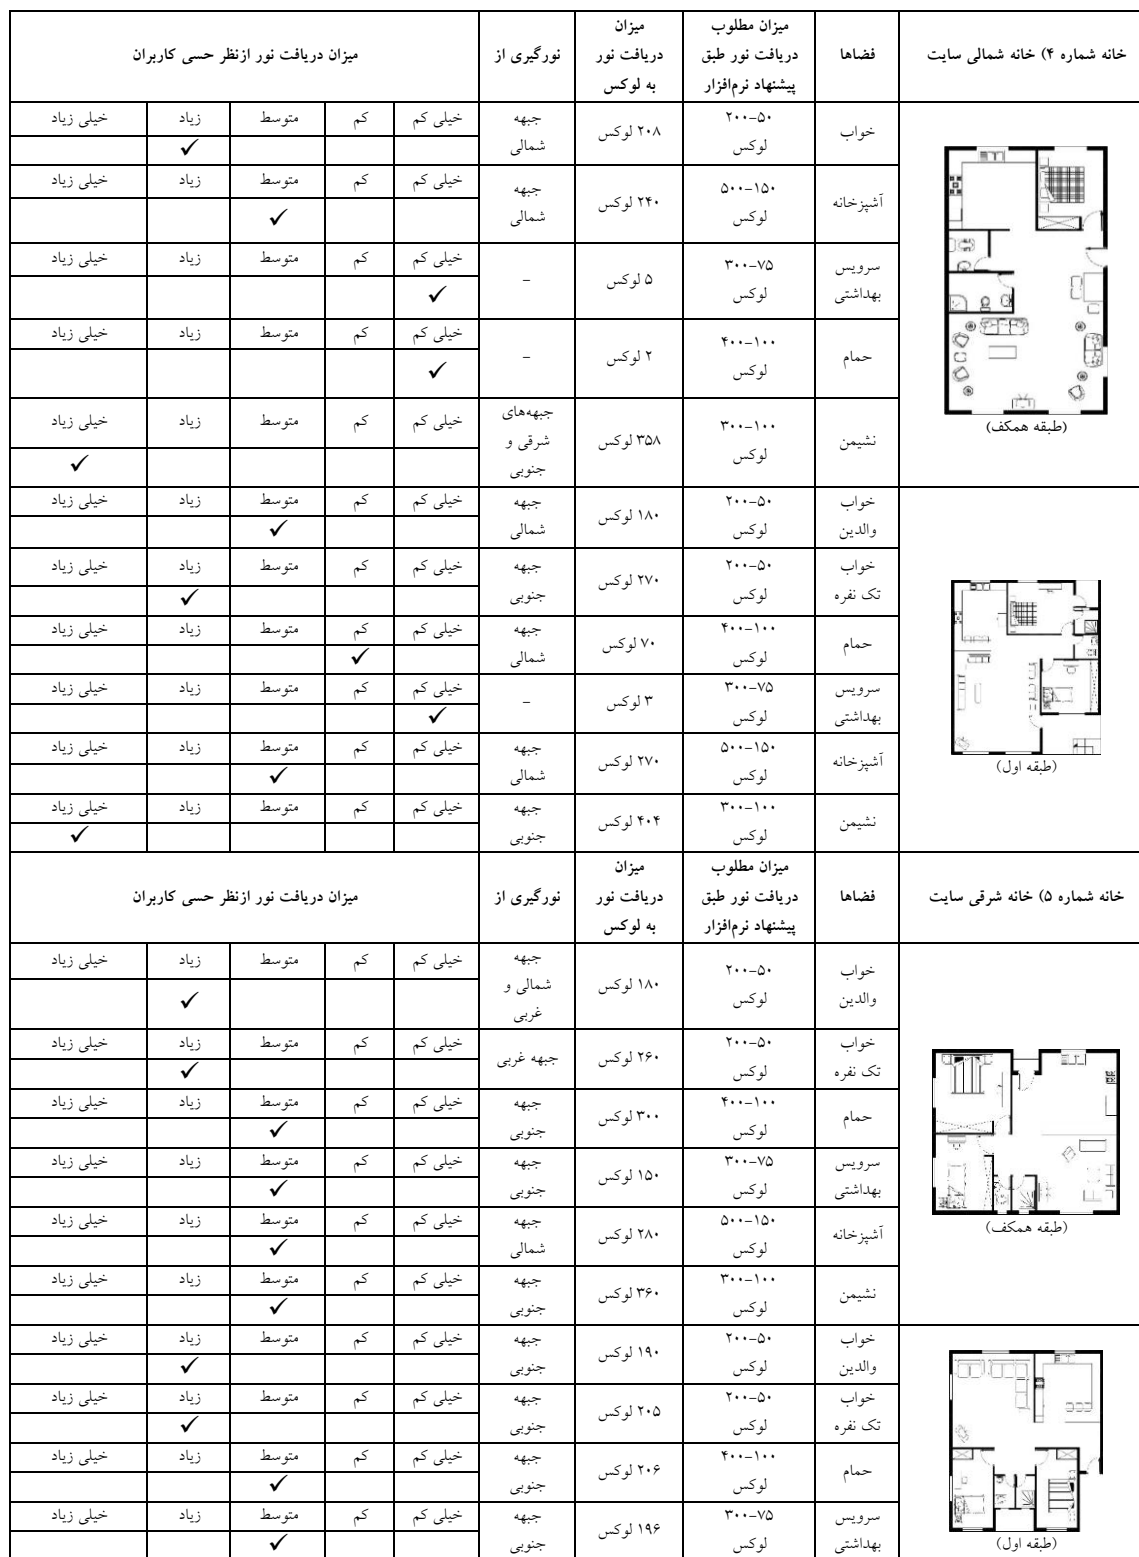 خانه شماره ۴) خانه شمالی سایت
فضاها
میزان مطلوب
دریافت نور طبق
پیشنهاد نرم‌افزار
میزان
دریافت نور
به لوکس
نورگیری از
میزان دریافت نور ازنظر حسی کاربران
(طبقه همکف)
خواب
۲۰۰-۵۰
لوکس
۲۰۸ لوکس
جبهه
شمالی
خیلی کم کم متوسط زیاد خیلی زیاد
✓
آشپزخانه
۵۰۰-۱۵۰
لوکس
۲۴۰ لوکس
جبهه
شمالی
خیلی کم کم متوسط زیاد خیلی زیاد
✓
سرویس
بهداشتی
۳۰۰-۷۵
لوکس
۵ لوکس
-
خیلی کم کم متوسط زیاد خیلی زیاد
✓
حمام
۴۰۰-۱۰۰
لوکس
۲ لوکس
-
خیلی کم کم متوسط زیاد خیلی زیاد
✓
نشیمن
۳۰۰-۱۰۰
لوکس
۳۵۸ لوکس
جبهه‌های
شرقی و
جنوبی
خیلی کم کم متوسط زیاد خیلی زیاد
✓
(طبقه اول)
خواب
والدین
۲۰۰-۵۰
لوکس
۱۸۰ لوکس
جبهه
شمالی
خیلی کم کم متوسط زیاد خیلی زیاد
✓
خواب
تک نفره
۲۰۰-۵۰
لوکس
۲۷۰ لوکس
جبهه
جنوبی
خیلی کم کم متوسط زیاد خیلی زیاد
✓
حمام
۴۰۰-۱۰۰
لوکس
۷۰ لوکس
جبهه
شمالی
خیلی کم کم متوسط زیاد خیلی زیاد
✓
سرویس
بهداشتی
۳۰۰-۷۵
لوکس
۳ لوکس
-
خیلی کم کم متوسط زیاد خیلی زیاد
✓
آشپزخانه
۵۰۰-۱۵۰
لوکس
۲۷۰ لوکس
جبهه
شمالی
خیلی کم کم متوسط زیاد خیلی زیاد
✓
نشیمن
۳۰۰-۱۰۰
لوکس
۴۰۴ لوکس
جبهه
جنوبی
خیلی کم کم متوسط زیاد خیلی زیاد
✓
خانه شماره ۵) خانه شرقی سایت
فضاها
میزان مطلوب
دریافت نور طبق
پیشنهاد نرم‌افزار
میزان
دریافت نور
به لوکس
نورگیری از
میزان دریافت نور ازنظر حسی کاربران
(طبقه همکف)
خواب
والدین
۲۰۰-۵۰
لوکس
۱۸۰ لوکس
جبهه
شمالی و
غربی
خیلی کم کم متوسط زیاد خیلی زیاد
✓
خواب
تک نفره
۲۰۰-۵۰
لوکس
۲۶۰ لوکس
جبهه غربی
خیلی کم کم متوسط زیاد خیلی زیاد
✓
حمام
۴۰۰-۱۰۰
لوکس
۳۰۰ لوکس
جبهه
جنوبی
خیلی کم کم متوسط زیاد خیلی زیاد
✓
سرویس
بهداشتی
۳۰۰-۷۵
لوکس
۱۵۰ لوکس
جبهه
جنوبی
خیلی کم کم متوسط زیاد خیلی زیاد
✓
آشپزخانه
۵۰۰-۱۵۰
لوکس
۲۸۰ لوکس
جبهه
شمالی
خیلی کم کم متوسط زیاد خیلی زیاد
✓
نشیمن
۳۰۰-۱۰۰
لوکس
۳۶۰ لوکس
جبهه
جنوبی
خیلی کم کم متوسط زیاد خیلی زیاد
✓
(طبقه اول)
خواب
والدین
۲۰۰-۵۰
لوکس
۱۹۰ لوکس
جبهه
جنوبی
خیلی کم کم متوسط زیاد خیلی زیاد
✓
خواب
تک نفره
۲۰۰-۵۰
لوکس
۲۰۵ لوکس
جبهه
جنوبی
خیلی کم کم متوسط زیاد خیلی زیاد
✓
حمام
۴۰۰-۱۰۰
لوکس
۲۰۶ لوکس
جبهه
جنوبی
خیلی کم کم متوسط زیاد خیلی زیاد
✓
سرویس
بهداشتی
۳۰۰-۷۵
لوکس
۱۹۶ لوکس
جبهه
جنوبی
خیلی کم کم متوسط زیاد خیلی زیاد
✓